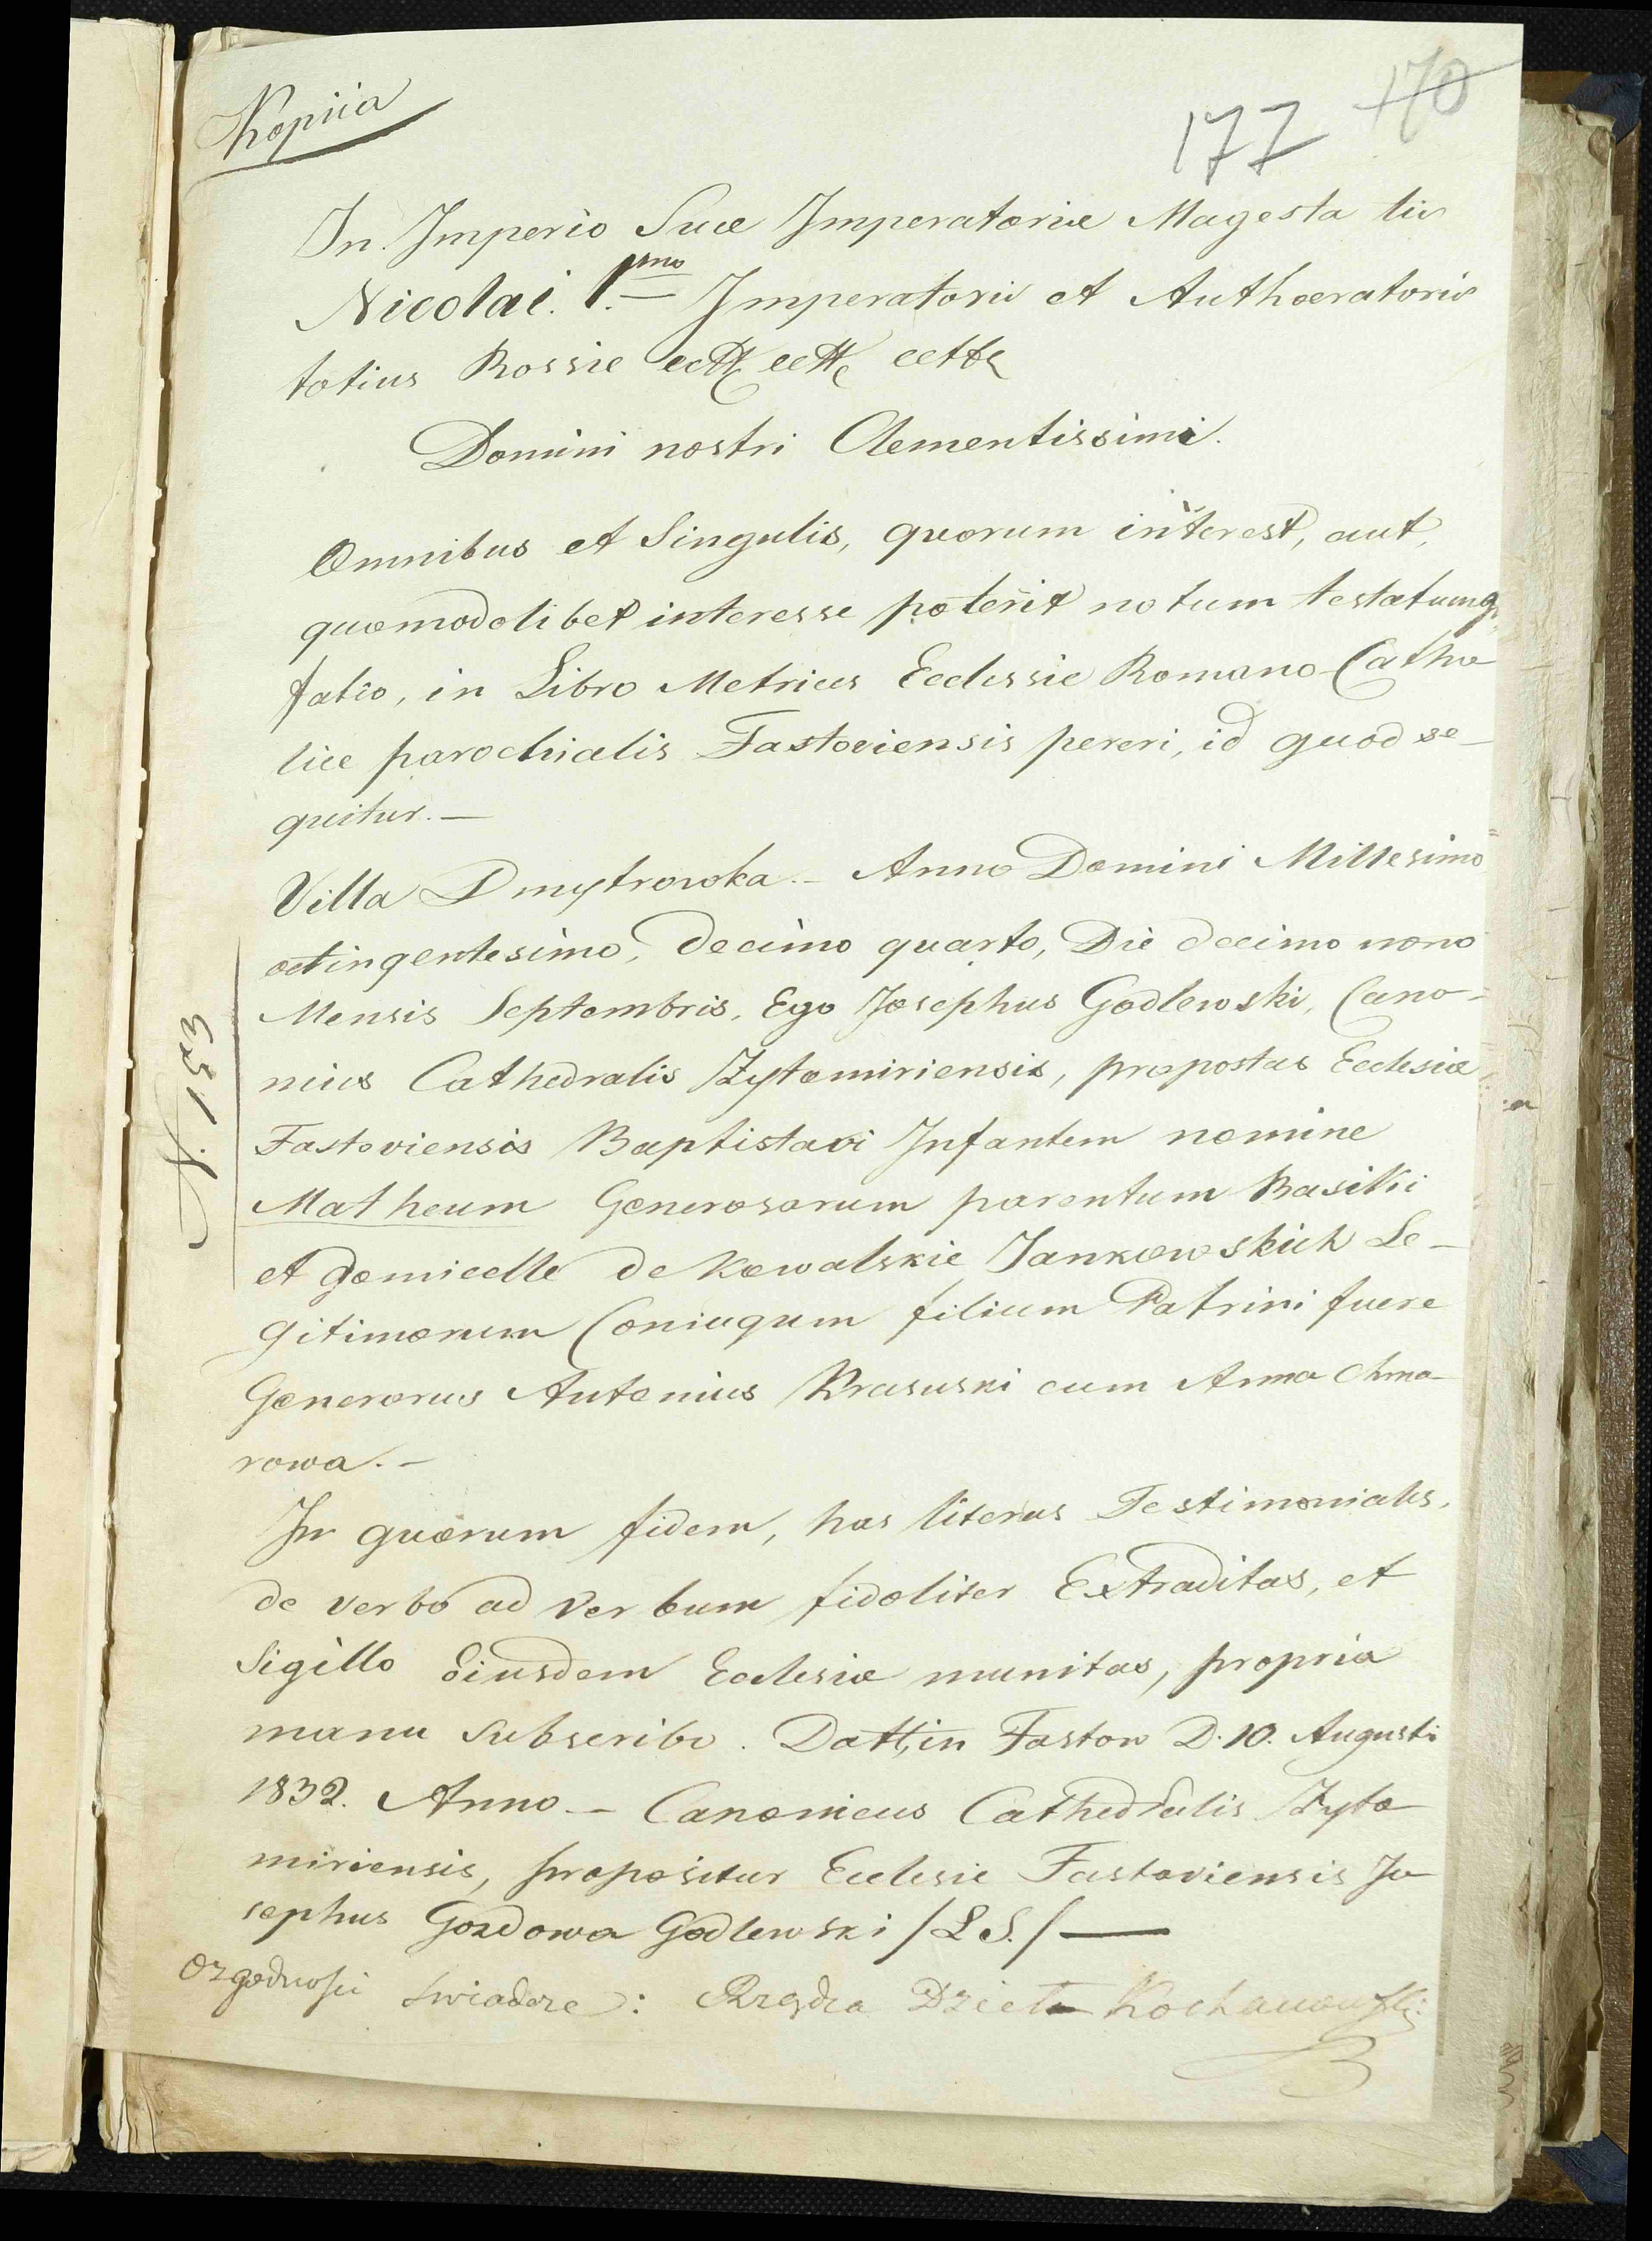 Kopiia
177 170
In Imperio Suæ Imperatoriæ Magesta tis
Nicolai. 1.mo Imperatoris et Authocratoris
totius Rossie ectt ectt ectt
Domini nostri Clementissimi.
Omnibus et Singulis, quorum interest, aut,
quomodolibet interesse poterit notum testatumq
fatio, in Libro Metrices Ecclessie Romano-Catho
lice parochialis Fastoviensis pereri, id quod se-
quitur.-
Villa Dmytrowka.- Anno Domini Millesimo
octingentesimo, decimo quarto, Die decimo nono
Mensis Septembris, Ego Josephus Godlewski, Cano-
nius Cathedralis Zytomiriensis, propostas Ecclesiæ
Fastoviensis Baptistavi Infantem nomine
Matheum Generosorum parentum Basilii
et Domicelle de Kowalskie Jankowskich Le-
gitimorum Coniugum filium Patrini fuere
Generorus Antonius Krasuski cum Anna Chma-
rowa.-
N. 153
In quorum fidem, has literas Testimoniales,
de verbo ad Verbum fideliter Extraditas, et
Sigillo Eiusdem Ecclesiæ munitas, propria
manu Subscribo. Datt, in Fastow D. 10. Augusti
1832. Anno - Canonicus Cathedralis Zyto
miriensis, propositur Ecclesie Fastoviensis Jo
sephus Gozdowa Godlewski /L S./ —
O zgodności świadczę: Rządca Dzieła Kochanowski